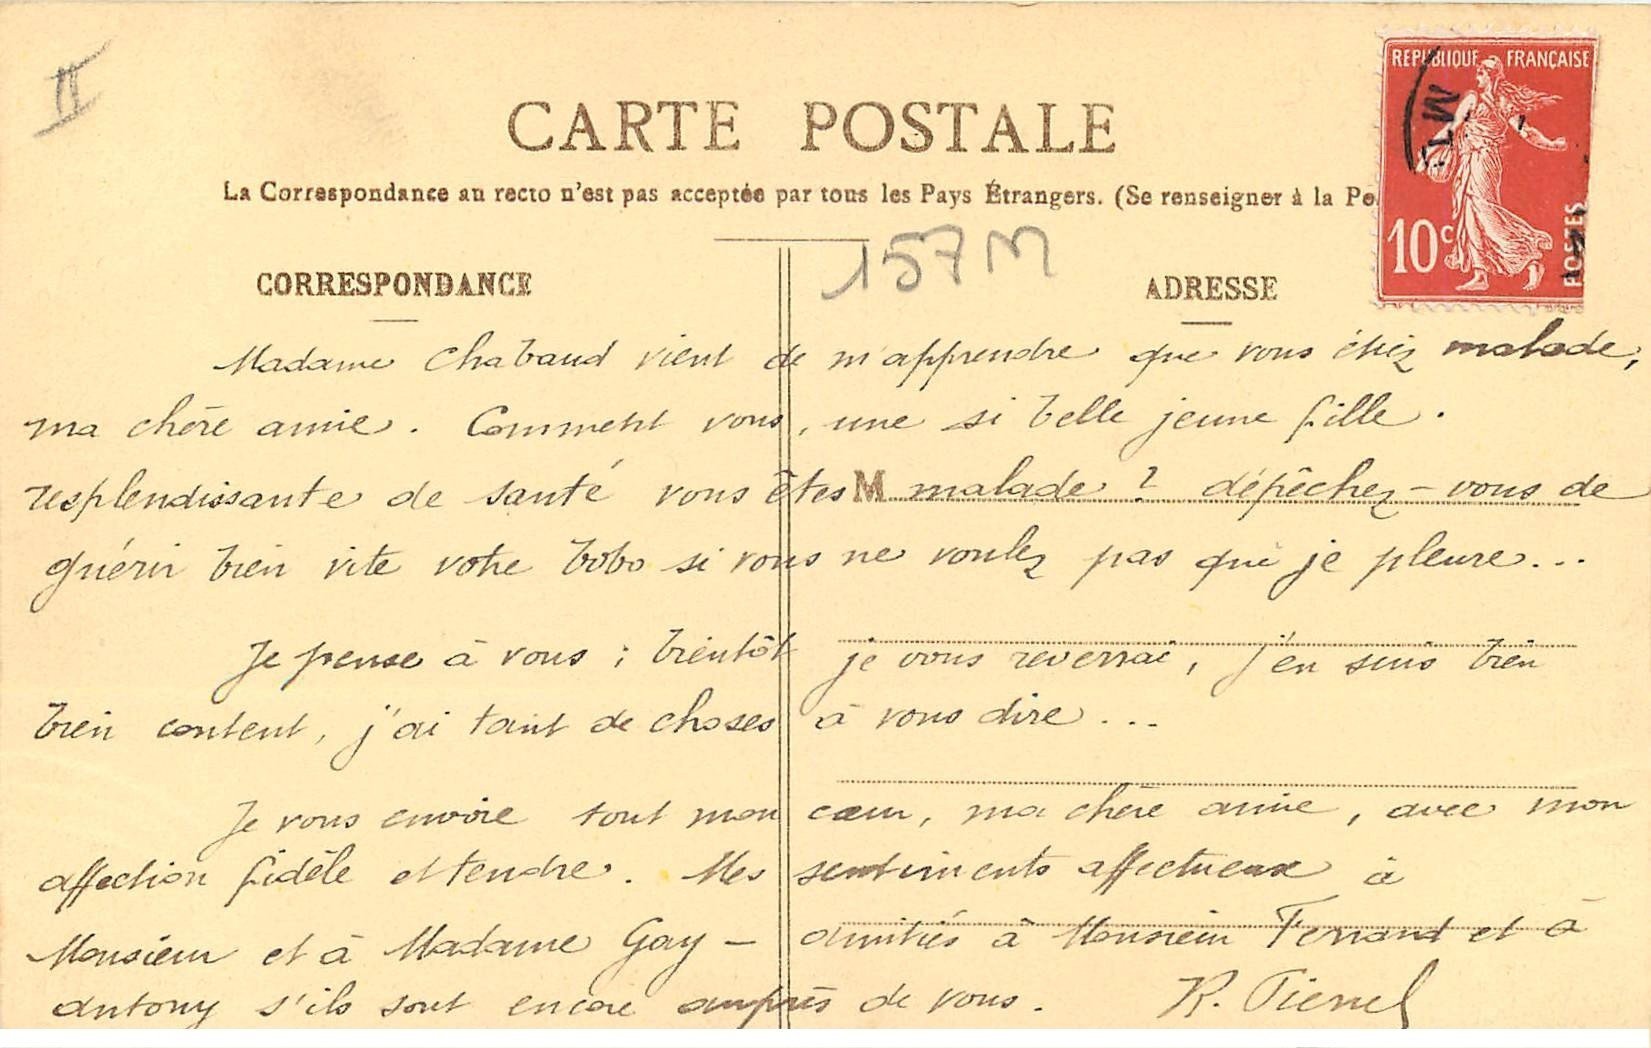 II
CARTE POSTALE
La Correspondance au recto n'est pas acceptée par tous les Pays Étrangers. (Se renseigner à la Po
REPUBLIQUE FRANÇAISE
10c
POSTES
157M
CORRESPONDANCE
ADRESSE
Madame Chabaud vient de m'apprendre que vous étiez malade,
ma chère amie. Comment vous, une si belle jeune fille.
resplendissante de santé vous êtes M malade ? dépêchez-vous de
guérir bien vite votre bobo si vous ne voulez pas que je pleure...
Je pense à vous ; bientôt je vous reverrai, j'en suis bien
bien content, j'ai tant de choses à vous dire...
Je vous envoie tout mon cœur, ma chère amie, avec mon
affection fidèle et tendre. Mes sentiments affectueux à
Monsieur et à Madame Gay - amitiés à Monsieur Fernand et à
Antony s'ils sont encore auprès de vous. R.